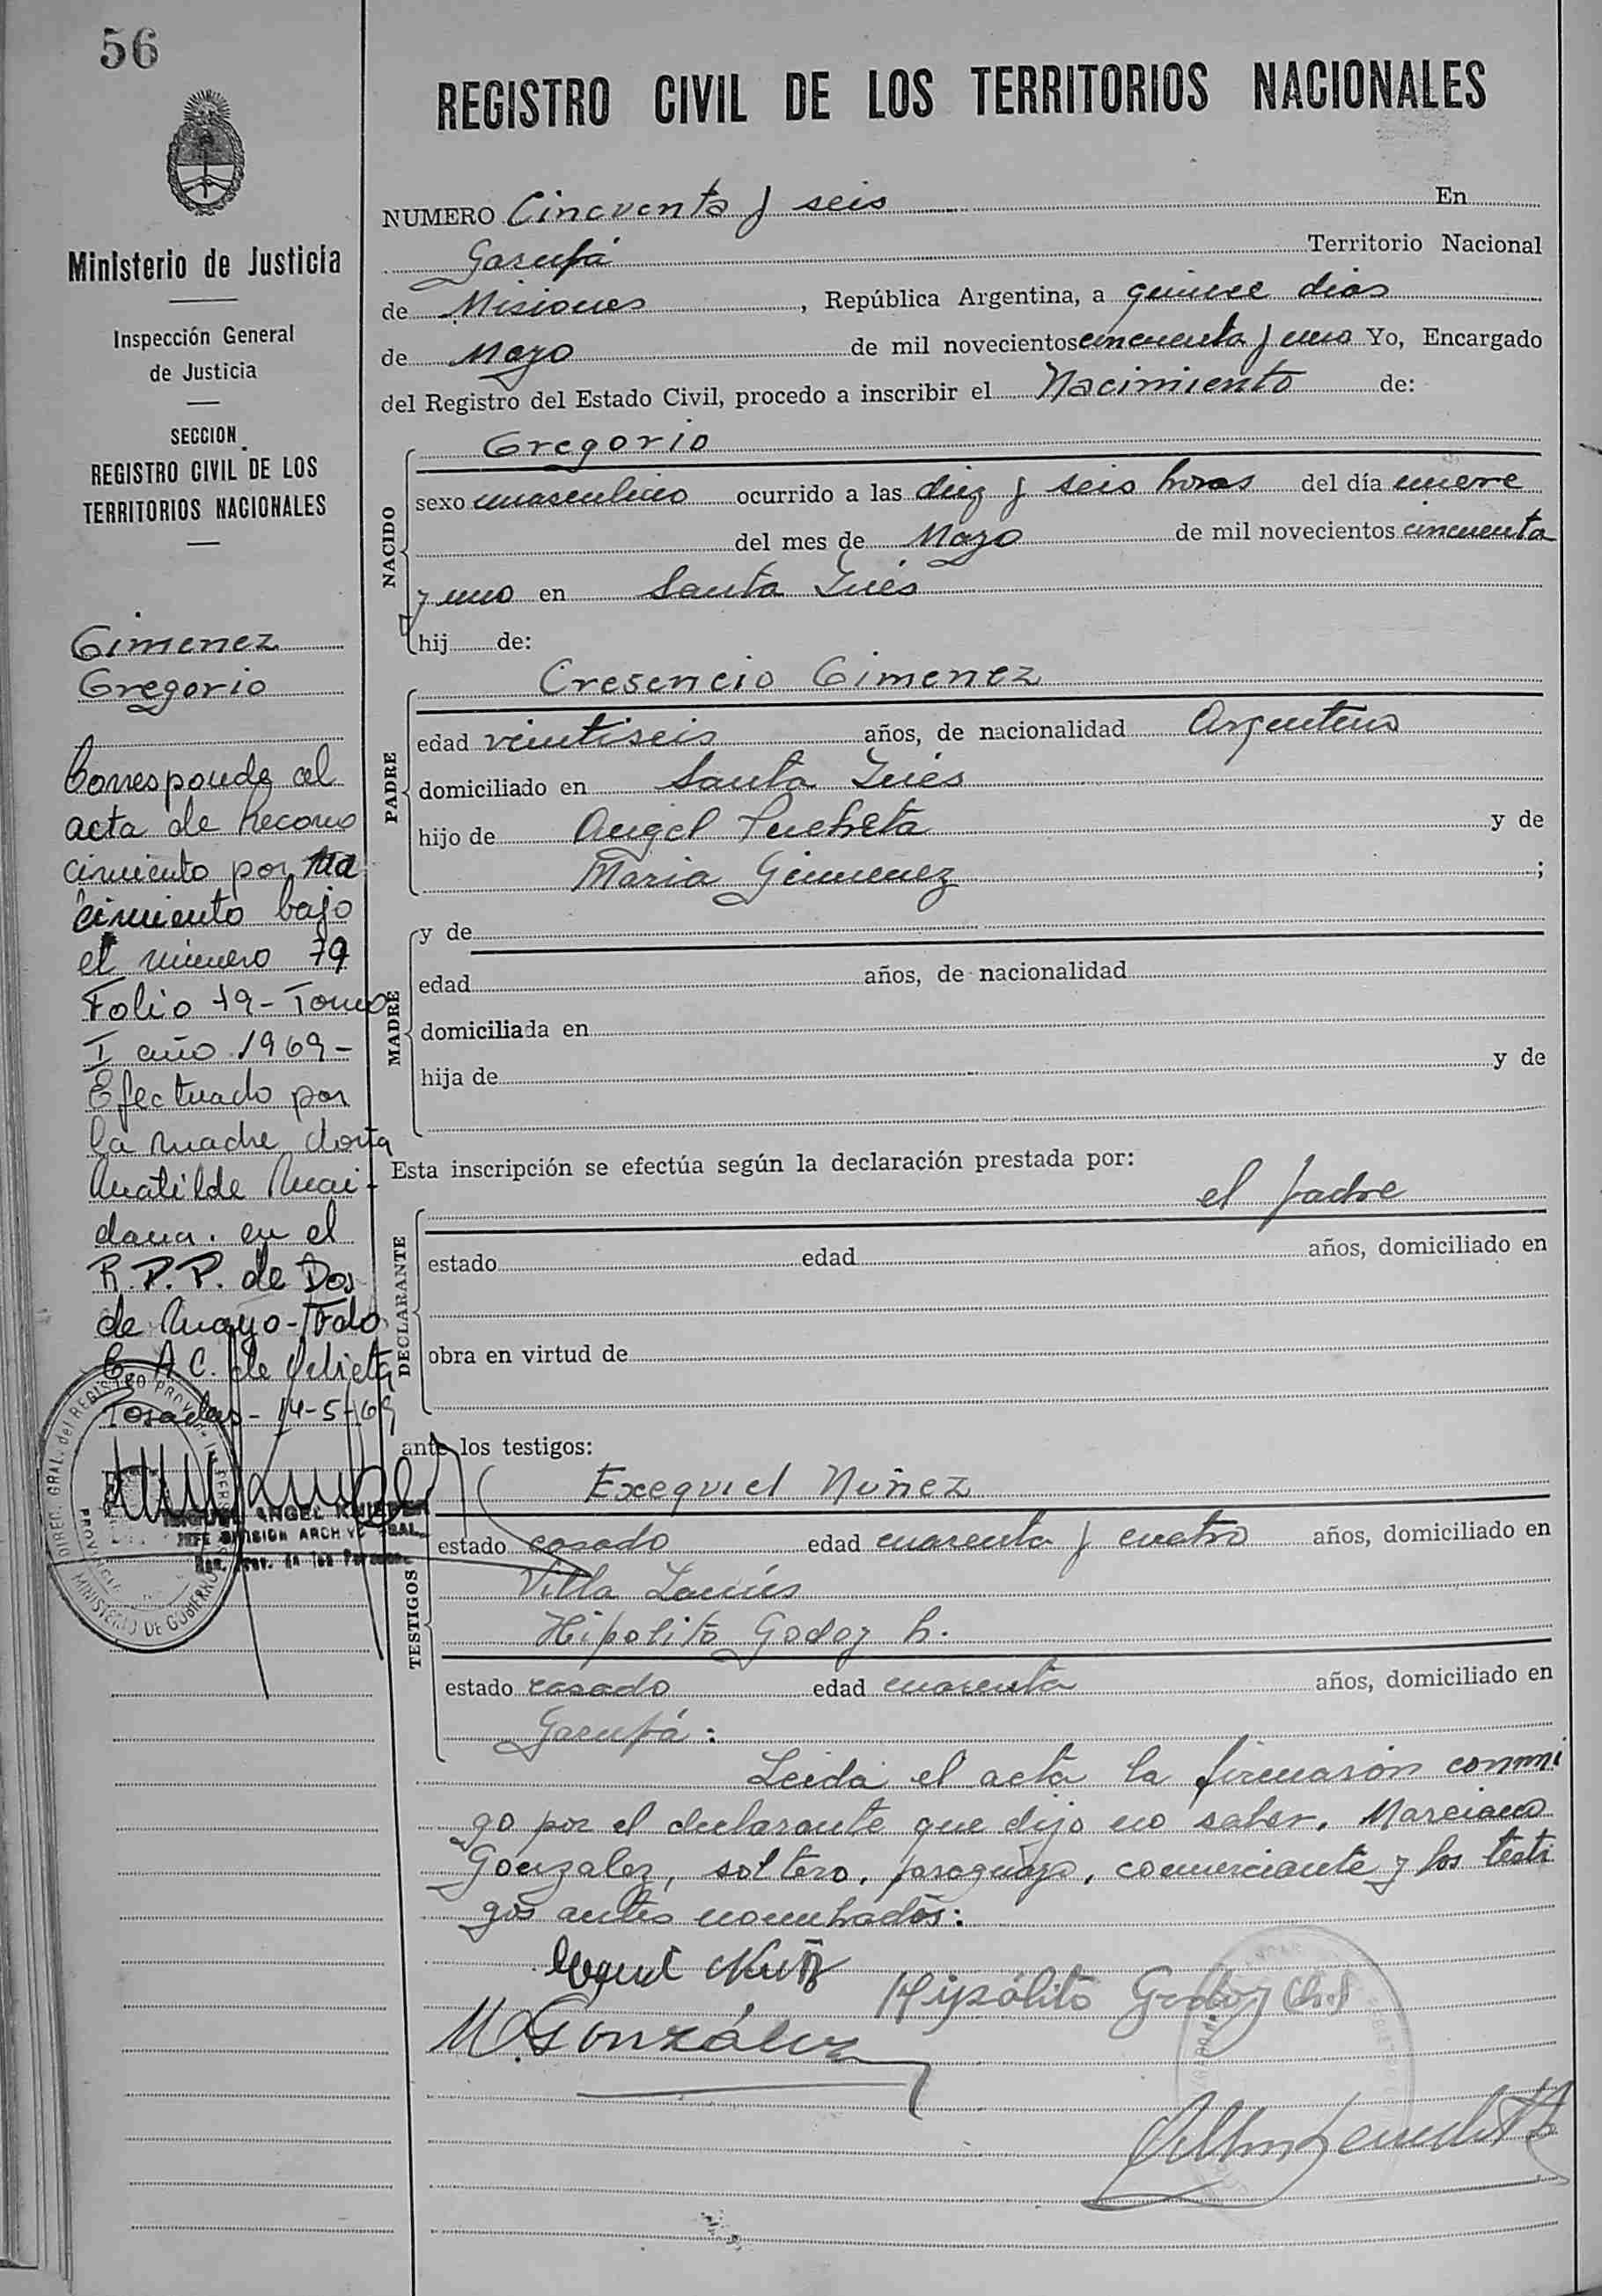 56
REGISTRO CIVIL DE LOS TERRITORIOS NACIONALES
Ministerio de Justicia
Inspección General
de Justicia
SECCION
REGISTRO CIVIL DE LOS
TERRITORIOS NACIONALES
Gimenez
Gregorio
Corresponde al
acta de Recono
cimiento por Na
cimiento bajo
el número 79
Folio 79 - Tomo
I año 1969 -
Efectuado por
la madre doña
Matilde Mai-
dana. en el
R.P.P. de Dos
de Mayo - Fdo
A. C. de
Posadas - 14-5-69
DIREC. GRAL. del REGISTRO PROVIN
MINISTERIO DE GOBIERNO
PROVINCIA
ANGEL
JEFE DIVISION ARCHIVO GRAL.
NUMERO Cincuenta y seis En
Garupá Territorio Nacional
de Misiones, República Argentina, a quince dias
de Mayo de mil novecientos cincuenta y uno Yo, Encargado
del Registro del Estado Civil, procedo a inscribir el Nacimiento de:
NACIDO
Gregorio
sexo masculino ocurrido a las diez y seis horas del día nueve
del mes de Mayo de mil novecientos cincuenta
y uno en Santa Inés
hij de:
PADRE
Cresencio Gimenez
edad veintiseis años, de nacionalidad Argentino
domiciliado en Santa Inés
hijo de Angel Pucheta y de
Maria Gimenez ;
MADRE
y de
edad años, de nacionalidad
domiciliada en
hija de y de
Esta inscripción se efectúa según la declaración prestada por:
DECLARANTE
el padre
estado edad años, domiciliado en
obra en virtud de
ante los testigos:
TESTIGOS
Exequiel Nuñez
estado casado edad cuarenta y cuatro años, domiciliado en
Villa Lanús
Hipolito Godoy h.
estado casado edad cuarenta años, domiciliado en
Garupá:
Leida el acta la firmarón conmi
go por el declarante que dijo no saber, Marciano
Gonzalez, soltero, paraguayo, comerciante y los testi
gos antes nombrados:
Hipólito Godoy (h.)
M. González